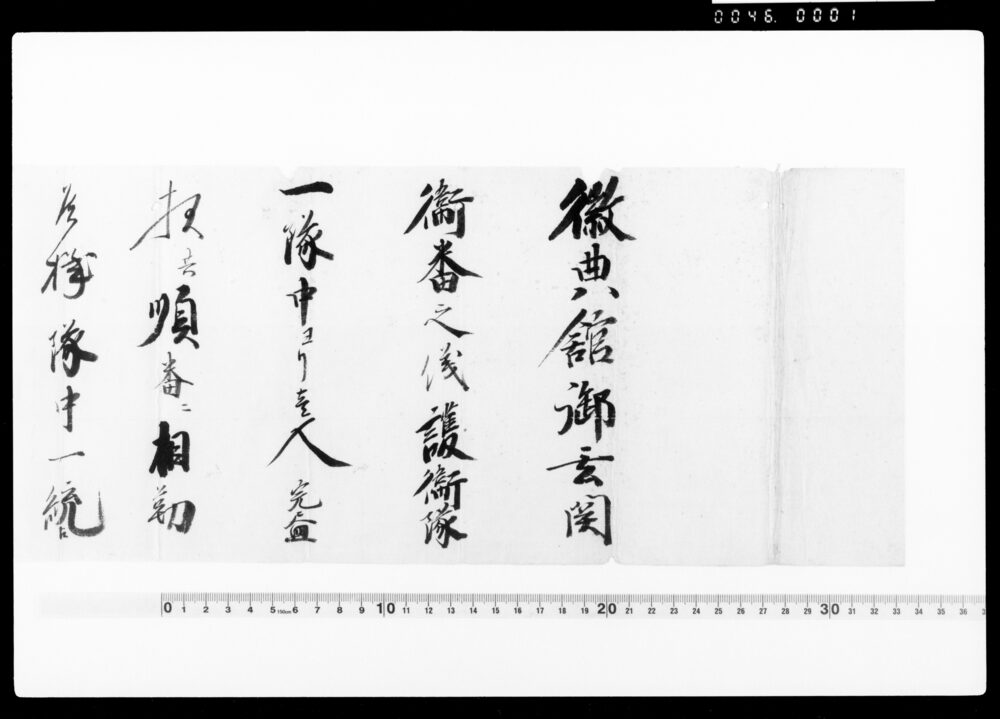 0046. 0001
徽典館御玄関
衛番之儀護衛隊
一隊中ヨリ壱人完
順番ニ相勤
隊中一統
0 1 2 3 4 5 150cm 6 7 8 9 10 11 12 13 14 15 16 17 18 19 20 21 22 23 24 25 26 27 28 29 30 31 32 33 34 35 36